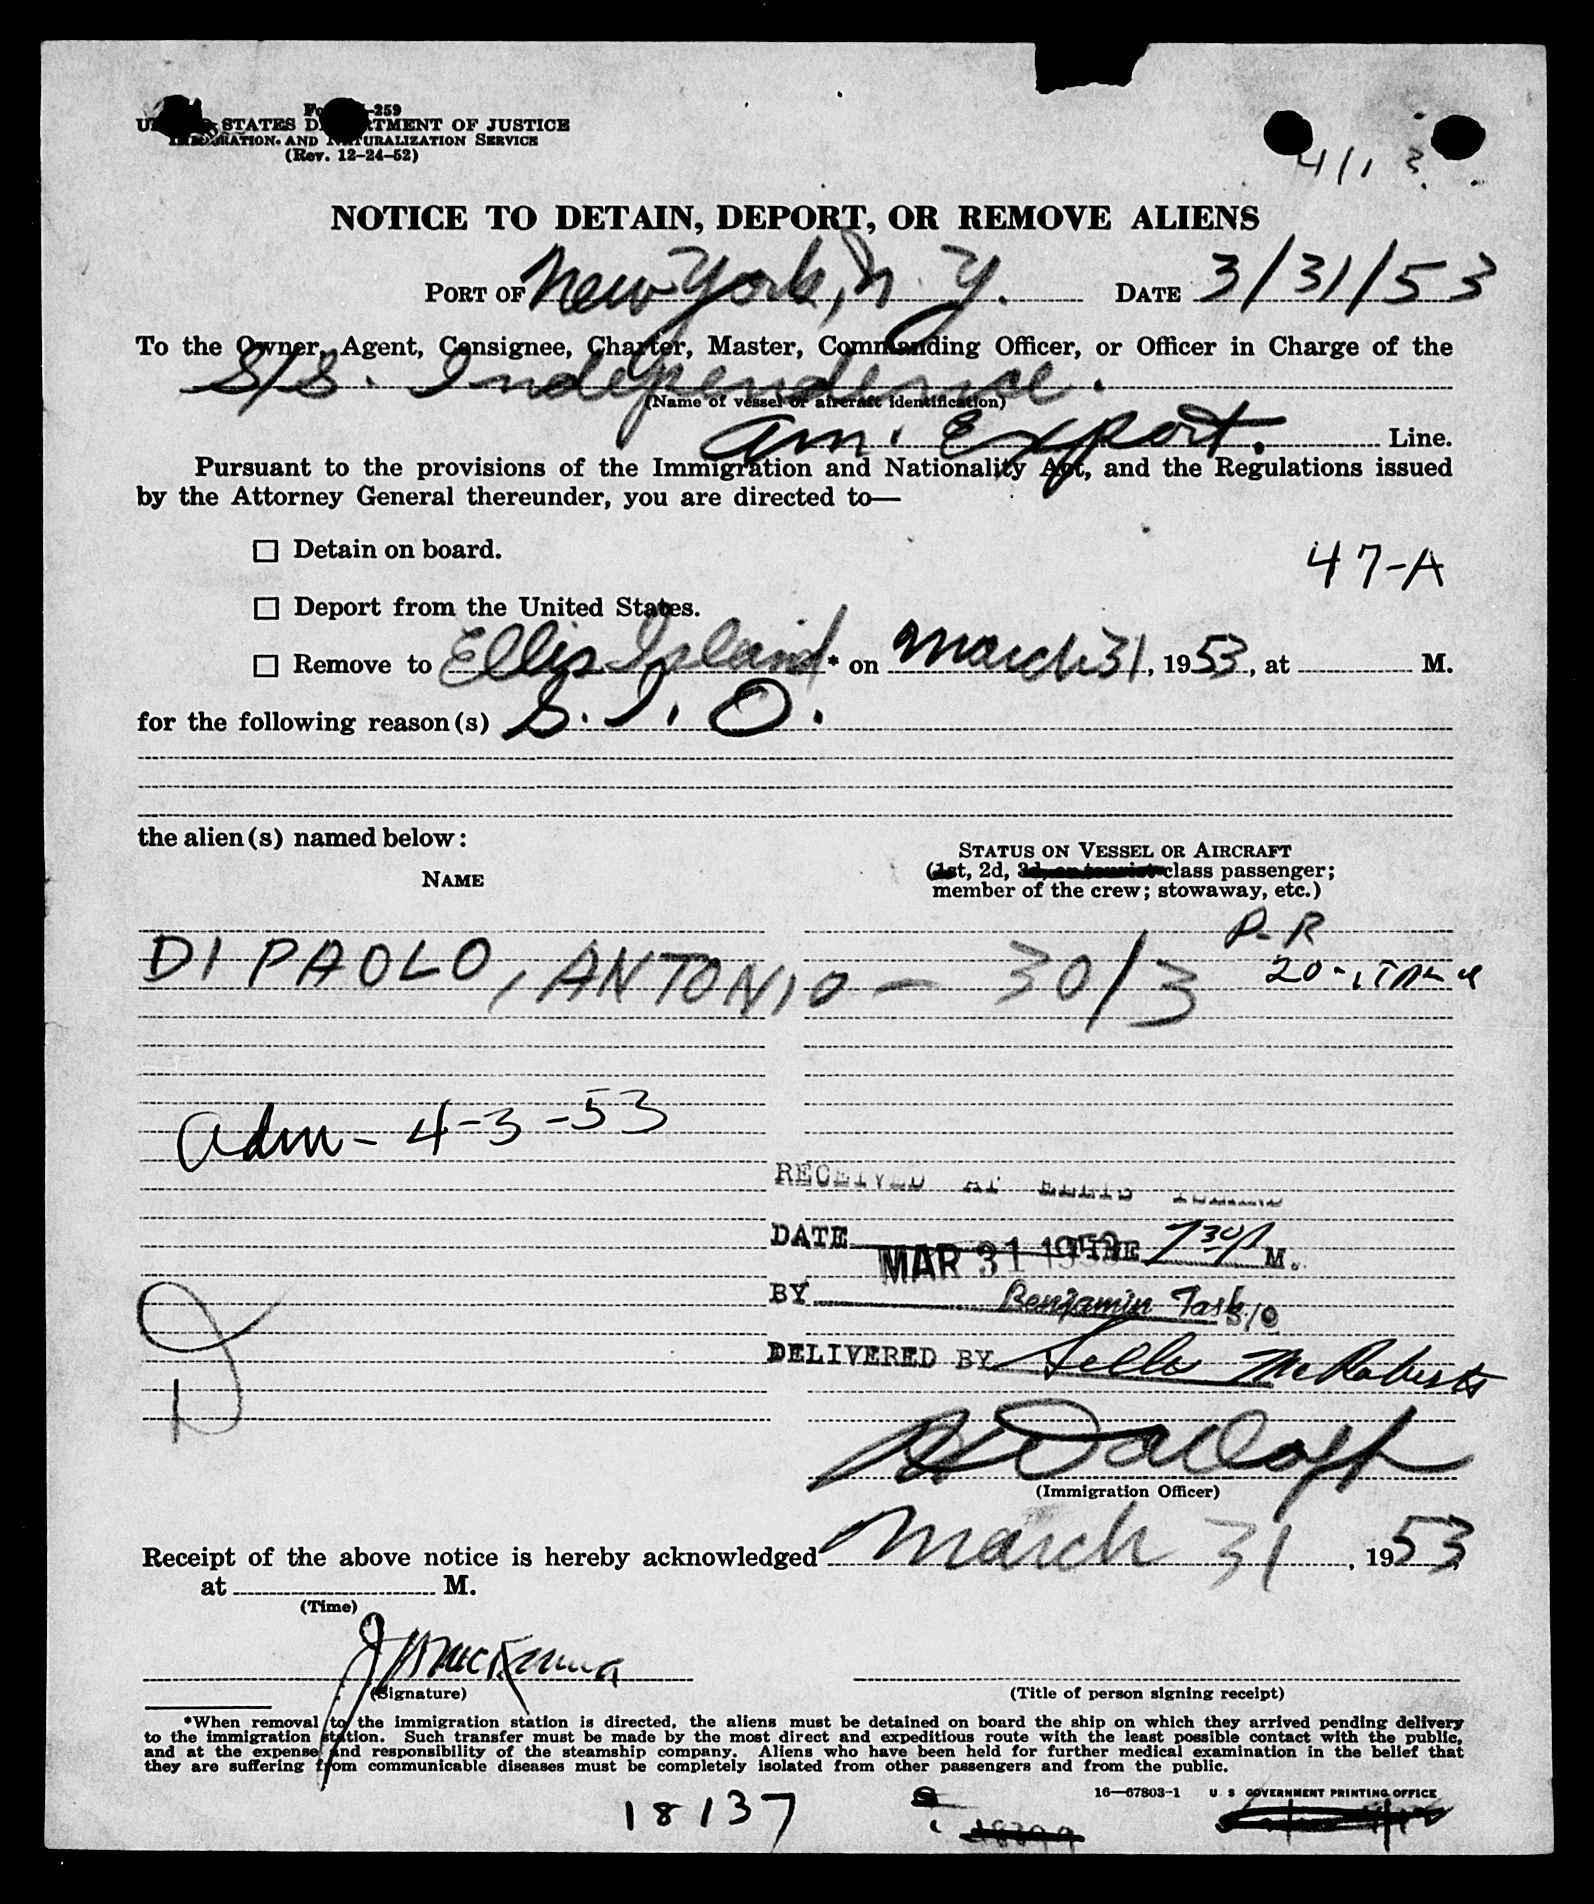 -259
STATES D TMENT OF JUSTICE
IMMIGRATION AND NATURALIZATION SERVICE
(Rev. 12-24-52)
4/1 3
NOTICE TO DETAIN, DEPORT, OR REMOVE ALIENS
PORT OF New York, N. Y. DATE 3/31/53
To the Owner, Agent, Consignee, Charter, Master, Commanding Officer, or Officer in Charge of the
S/S. Independence.
(Name of vessel or aircraft identification)
Am. Export. Line.
Pursuant to the provisions of the Immigration and Nationality Act, and the Regulations issued
by the Attorney General thereunder, you are directed to—
☐ Detain on board.
47-A
☐ Deport from the United States.
☐ Remove to Ellis Island* on March 31, 1953, at M.
for the following reason(s) S. I. O.
the alien(s) named below:
STATUS ON VESSEL OR AIRCRAFT
NAME
(1st, 2d, 3d, or tourist class passenger;
member of the crew; stowaway, etc.)
P-R
DI PAOLO, ANTONIO — 30/3
20-ITALY
adm - 4-3-53
RECEIVED AT ELLIS ISLAND
DATE MAR 31 1953 TIME 7 30 P M.
BY Benjamin Task S/O
DELIVERED BY McRoberts
(Immigration Officer)
Receipt of the above notice is hereby acknowledged March 31, 1953
at M.
(Time)
(Signature)
(Title of person signing receipt)
*When removal to the immigration station is directed, the aliens must be detained on board the ship on which they arrived pending delivery
to the immigration station. Such transfer must be made by the most direct and expeditious route with the least possible contact with the public,
and at the expense and responsibility of the steamship company. Aliens who have been held for further medical examination in the belief that
they are suffering from communicable diseases must be completely isolated from other passengers and from the public.
16—67803-1 U S GOVERNMENT PRINTING OFFICE
18137